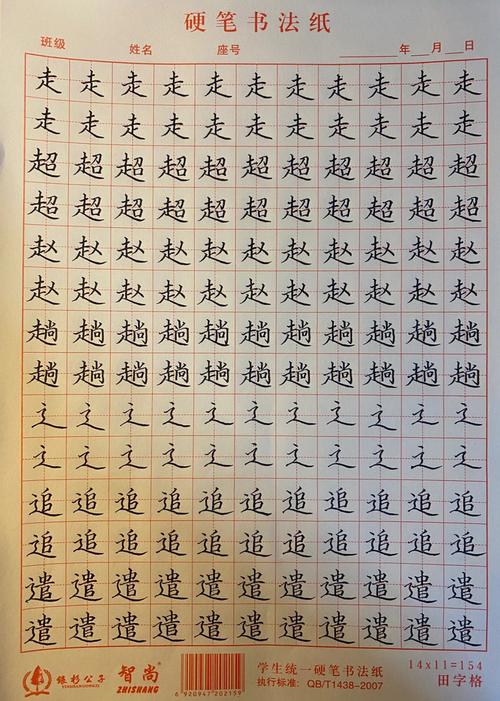 硬笔书法纸
班级 姓名 座号 年 月 日
走走走走走走走走走走走
走走走走走走走走走走走
超超超超超超超超超超超
超超超超超超超超超超超
赵赵赵赵赵赵赵赵赵赵赵
赵赵赵赵赵赵赵赵赵赵赵
趟趟趟趟趟趟趟趟趟趟趟
趟趟趟趟趟趟趟趟趟趟趟
辶辶辶辶辶辶辶辶辶辶辶
辶辶辶辶辶辶辶辶辶辶辶
追追追追追追追追追追追
追追追追追追追追追追追
遣遣遣遣遣遣遣遣遣遣遣
遣遣遣遣遣遣遣遣遣遣遣
银杉公子 智尚 学生统一硬笔书法纸 14x11=154
YINSHANGONGZI ZHISHANG 执行标准: QB/T1438-2007 田字格
6 920947 202159